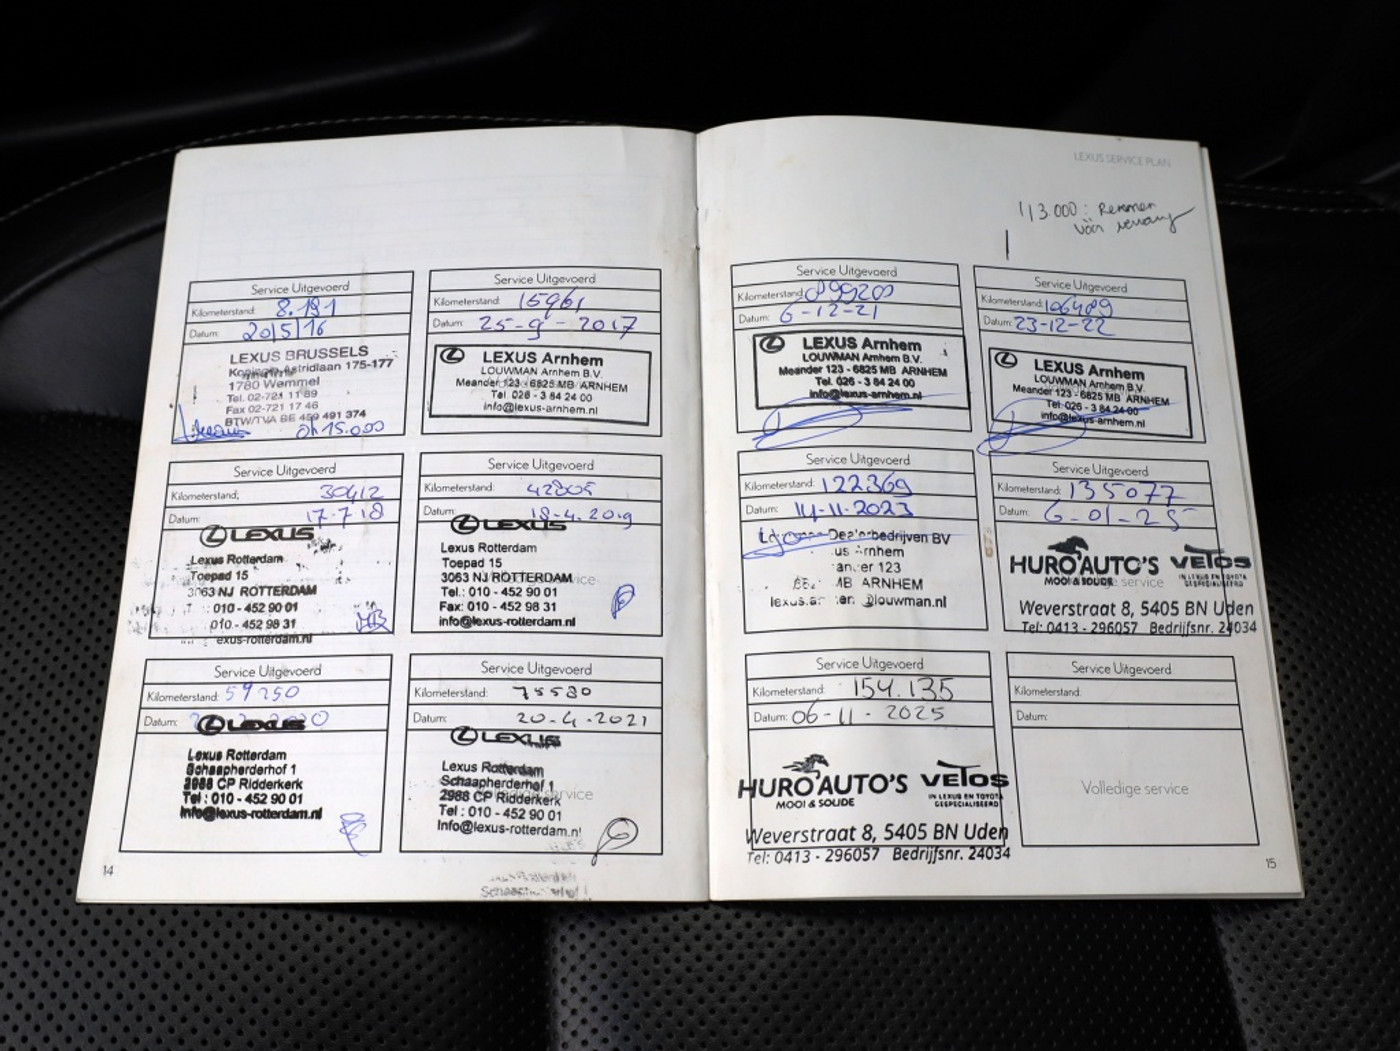 Service Uitgevoerd
Kilometerstand: 8.191
Datum: 20/5/16
LEXUS BRUSSELS
Koningin Astridlaan 175-177
1780 Wemmel
Tel. 02-721 11 89
Fax 02-721 17 46
BTW/TVA BE 459 491 374
15.000
Service Uitgevoerd
Kilometerstand: 15961
Datum: 25-9-2017
LEXUS Arnhem
LOUWMAN Arnhem B.V.
Meander 123 - 6825 MB ARNHEM
Tel. 026 - 3 84 24 00
info@lexus-arnhem.nl
Service Uitgevoerd
Kilometerstand: 30412
Datum: 17-7-18
LEXUS
Lexus Rotterdam
Toepad 15
3063 NJ ROTTERDAM
: 010 - 452 90 01
010 - 452 98 31
exus-rotterdam.nl
Service Uitgevoerd
Kilometerstand: 42805
Datum: 18-4-2019
LEXUS
Lexus Rotterdam
Toepad 15
3063 NJ ROTTERDAM
Tel.: 010 - 452 90 01
Fax: 010 - 452 98 31
info@lexus-rotterdam.nl
Service Uitgevoerd
Kilometerstand: 59250
Datum:
LEXUS
Lexus Rotterdam
Schaapherderhof 1
2988 CP Ridderkerk
Tel : 010 - 452 90 01
info@lexus-rotterdam.nl
Service Uitgevoerd
Kilometerstand: 75580
Datum: 20-4-2021
LEXUS
Lexus Rotterdam
Schaapherderhof 1
2988 CP Ridderkerk
Tel : 010 - 452 90 01
Info@lexus-rotterdam.nl
14
LEXUS SERVICE PLAN
113.000: Remmen
vóór
Service Uitgevoerd
Kilometerstand: 099209
Datum: 6-12-21
LEXUS Arnhem
LOUWMAN Arnhem B.V.
Meander 123 - 6825 MB ARNHEM
Tel. 026 - 3 84 24 00
info@lexus-arnhem.nl
Service Uitgevoerd
Kilometerstand: 106489
Datum: 23-12-22
LEXUS Arnhem
LOUWMAN Arnhem B.V.
Meander 123 - 6825 MB ARNHEM
Tel. 026 - 3 84 24 00
info@lexus-arnhem.nl
Service Uitgevoerd
Kilometerstand: 122369
Datum: 14-11-2023
Dealerbedrijven BV
us Arnhem
ander 123
MB ARNHEM
louwman.nl
Service Uitgevoerd
Kilometerstand: 135077
Datum: 6-01-25
HURO AUTO'S
MOOI & SOLIDE
VETOS
IN LEXUS EN TOYOTA
GESPECIALISEERD
service
Weverstraat 8, 5405 BN Uden
Tel: 0413 - 296057 Bedrijfsnr. 24034
Service Uitgevoerd
Kilometerstand: 154.135
Datum: 06-11-2025
HURO AUTO'S
MOOI & SOLIDE
VETOS
IN LEXUS EN TOYOTA
GESPECIALISEERD
Weverstraat 8, 5405 BN Uden
Tel: 0413 - 296057 Bedrijfsnr. 24034
Service Uitgevoerd
Kilometerstand:
Datum:
Volledige service
15